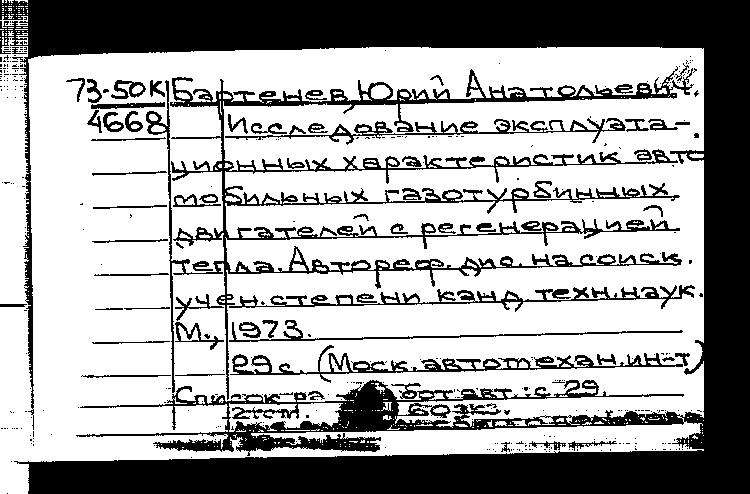 73-50К Бартенев, Юрий Анатольевич.
4668 Исследование эксплуата-
ционных характеристик авто
мобильных газотурбинных
двигателей с регенерацией
тепла. Автореф. дис. на соиск.
учен. степени канд. техн. наук.
М., 1973.
29 с. (Моск. автомехан. ин-т)
Список работ авт.: с. 29.
2 ст. 60 экз.